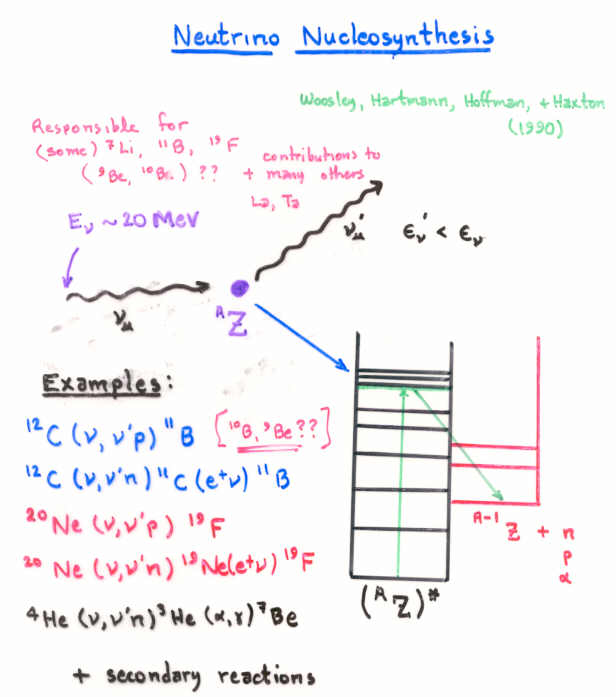 Neutrino Nucleosynthesis
Woosley, Hartmann, Hoffman, + Haxton
(1990)
Responsible for
(some) ⁷Li, ¹¹B, ¹⁹F
(⁹Be, ¹⁰Be) ??
contributions to
+ many others
La, Ta
Eν ~ 20 MeV
νμ' εν' < εν
νμ
ᴬZ
Examples:
¹²C (ν, ν'p) ¹¹B [¹⁰B, ⁹Be ??]
¹²C (ν, ν'n) ¹¹C (e⁺ν) ¹¹B
²⁰Ne (ν, ν'p) ¹⁹F
²⁰Ne (ν, ν'n) ¹⁹Ne(e⁺ν) ¹⁹F
⁴He (ν, ν'n) ³He (α, γ) ⁷Be
+ secondary reactions
ᴬ⁻¹Z + n
p
α
(ᴬZ)*